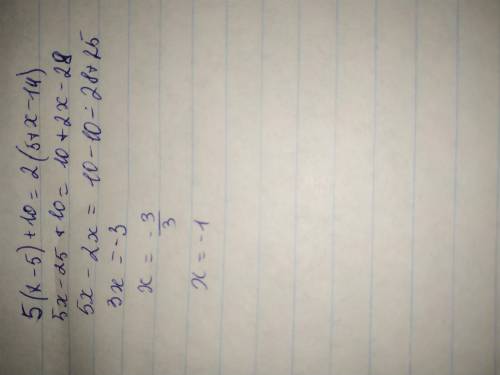 5(x-5)+10=2(5+x-14)
5x-25+10=10+2x-28
5x-2x=10-10-28+25
3x=-3
x=-3/3
x=-1